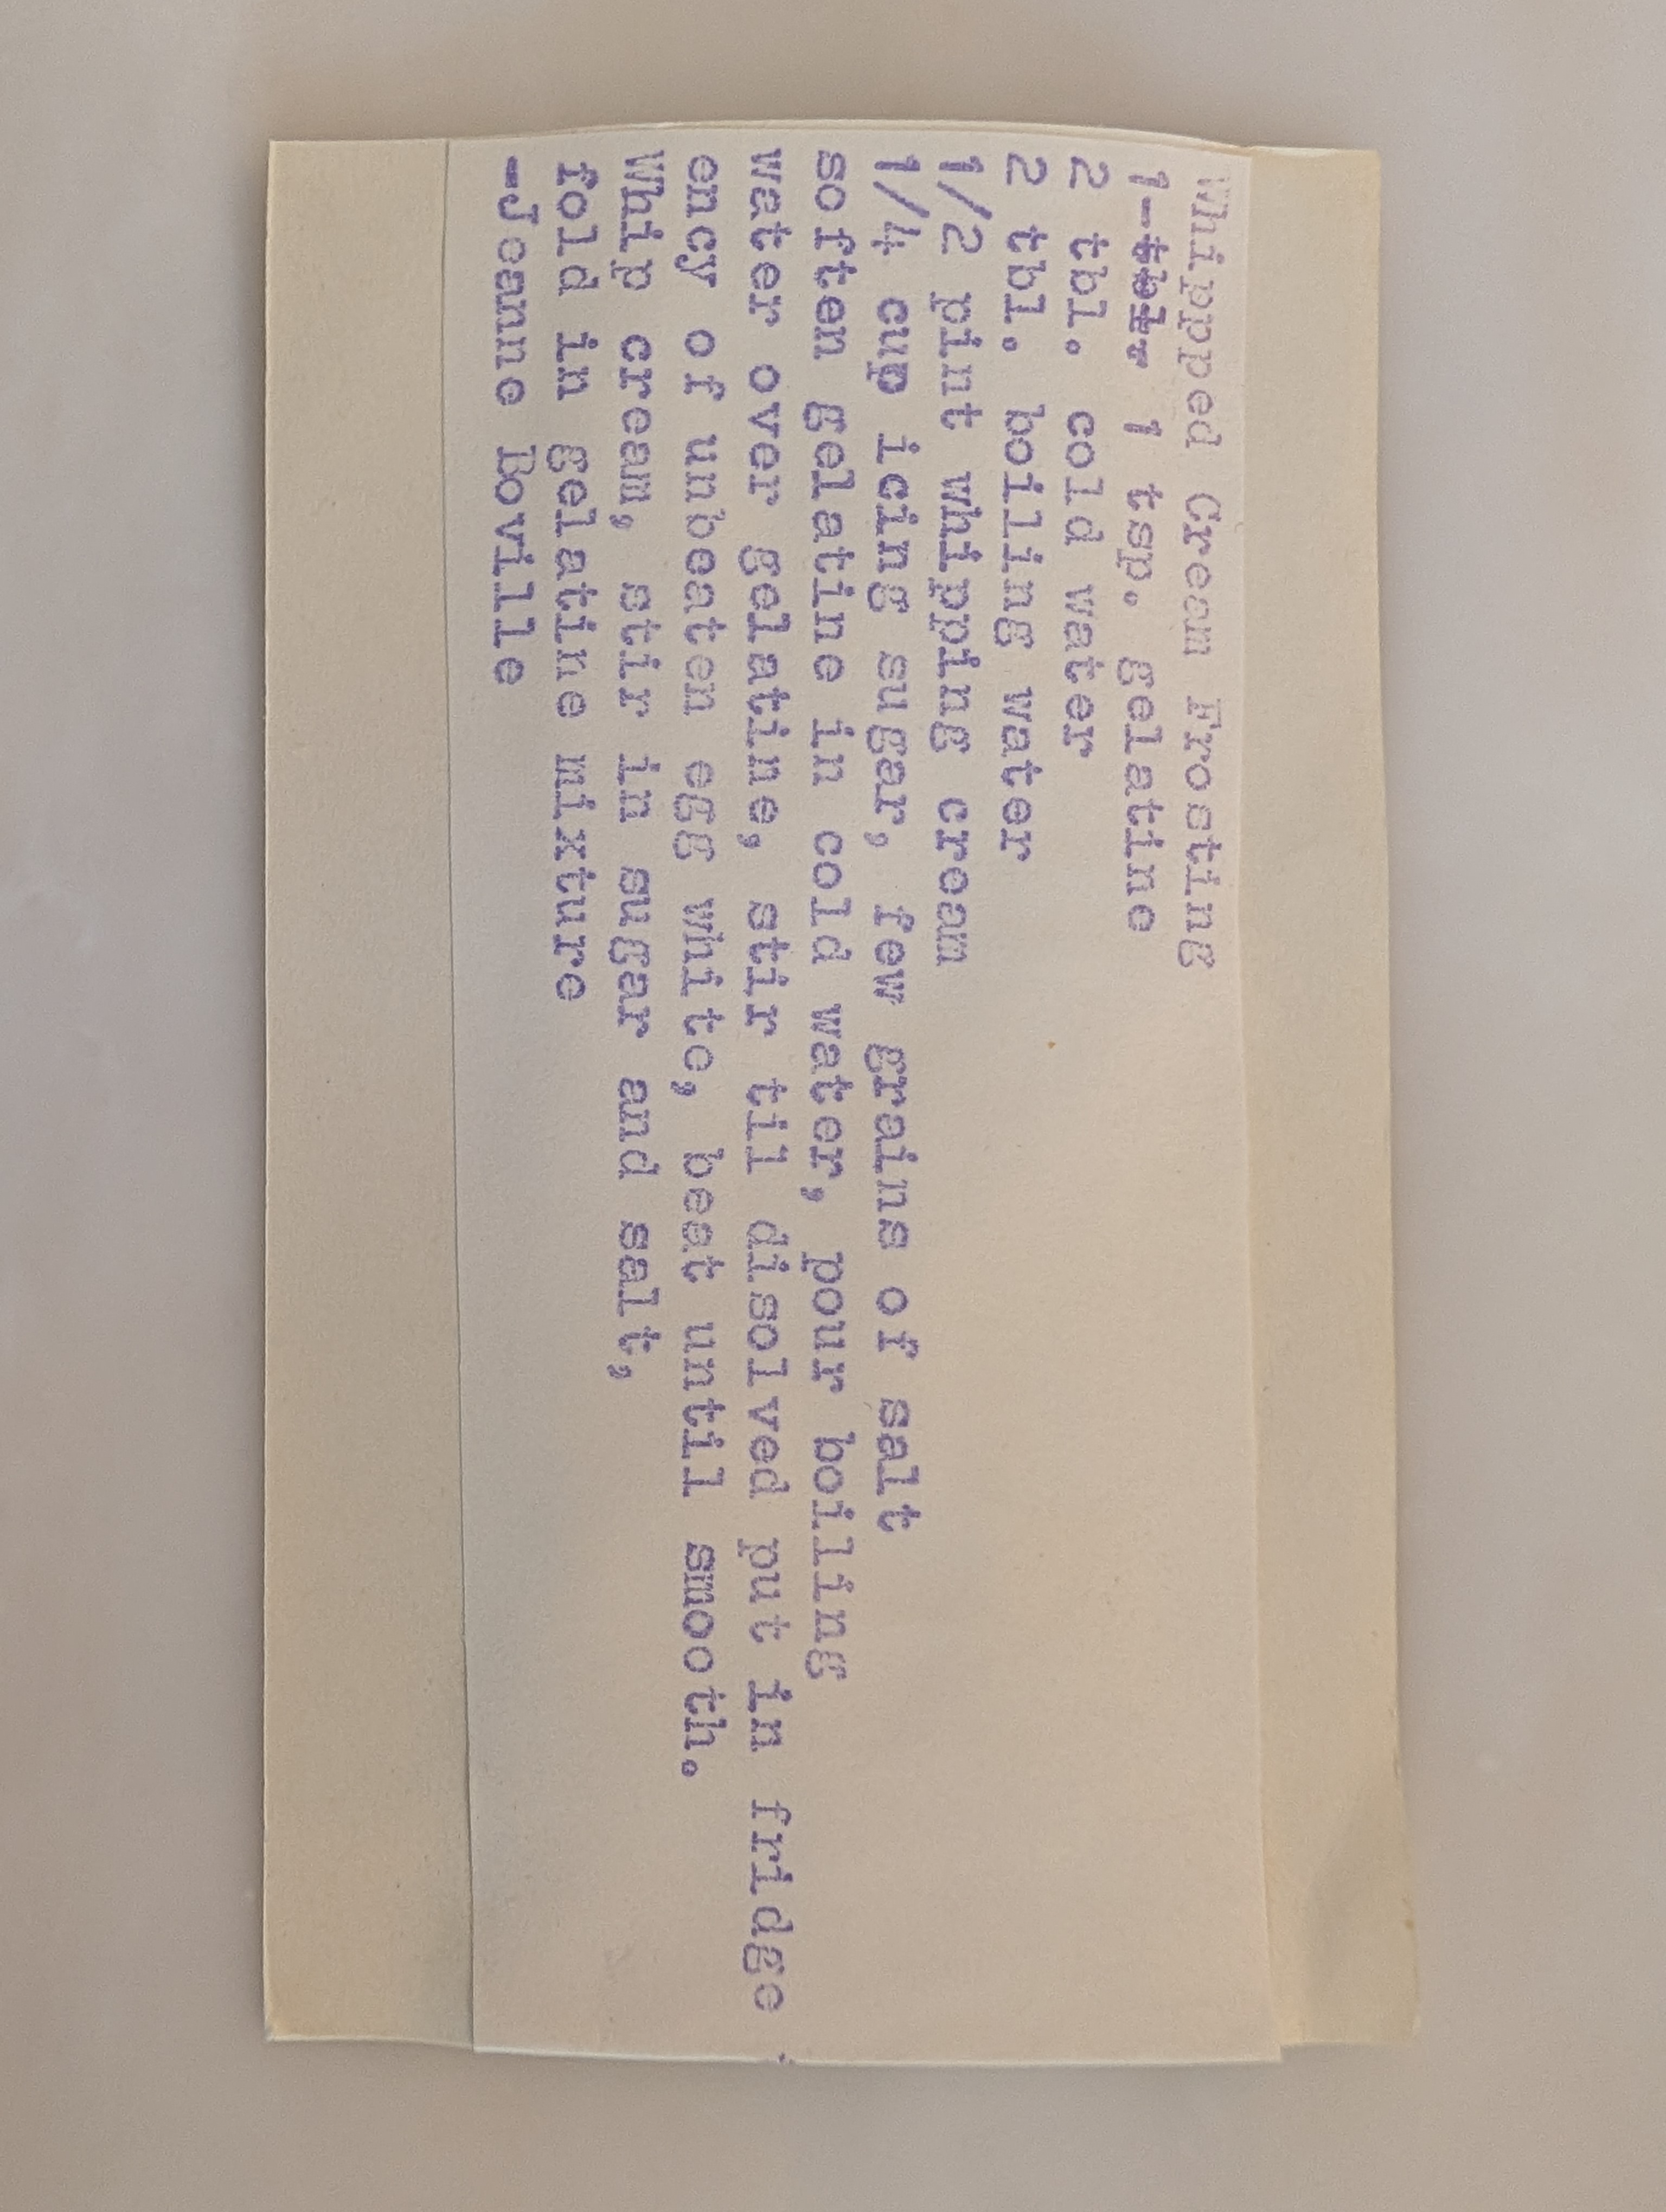 Whipped Cream Frosting
1 tbl. 1 tsp. gelatine
2 tbl. cold water
2 tbl. boiling water
1/2 pint whipping cream
1/4 cup icing sugar, few grains of salt
soften gelatine in cold water, pour boiling
water over gelatine, stir til disolved put in fridge
ency of unbeaten egg white, beat until smooth.
Whip cream, stir in sugar and salt,
fold in gelatine mixture
-Jeanne Boville